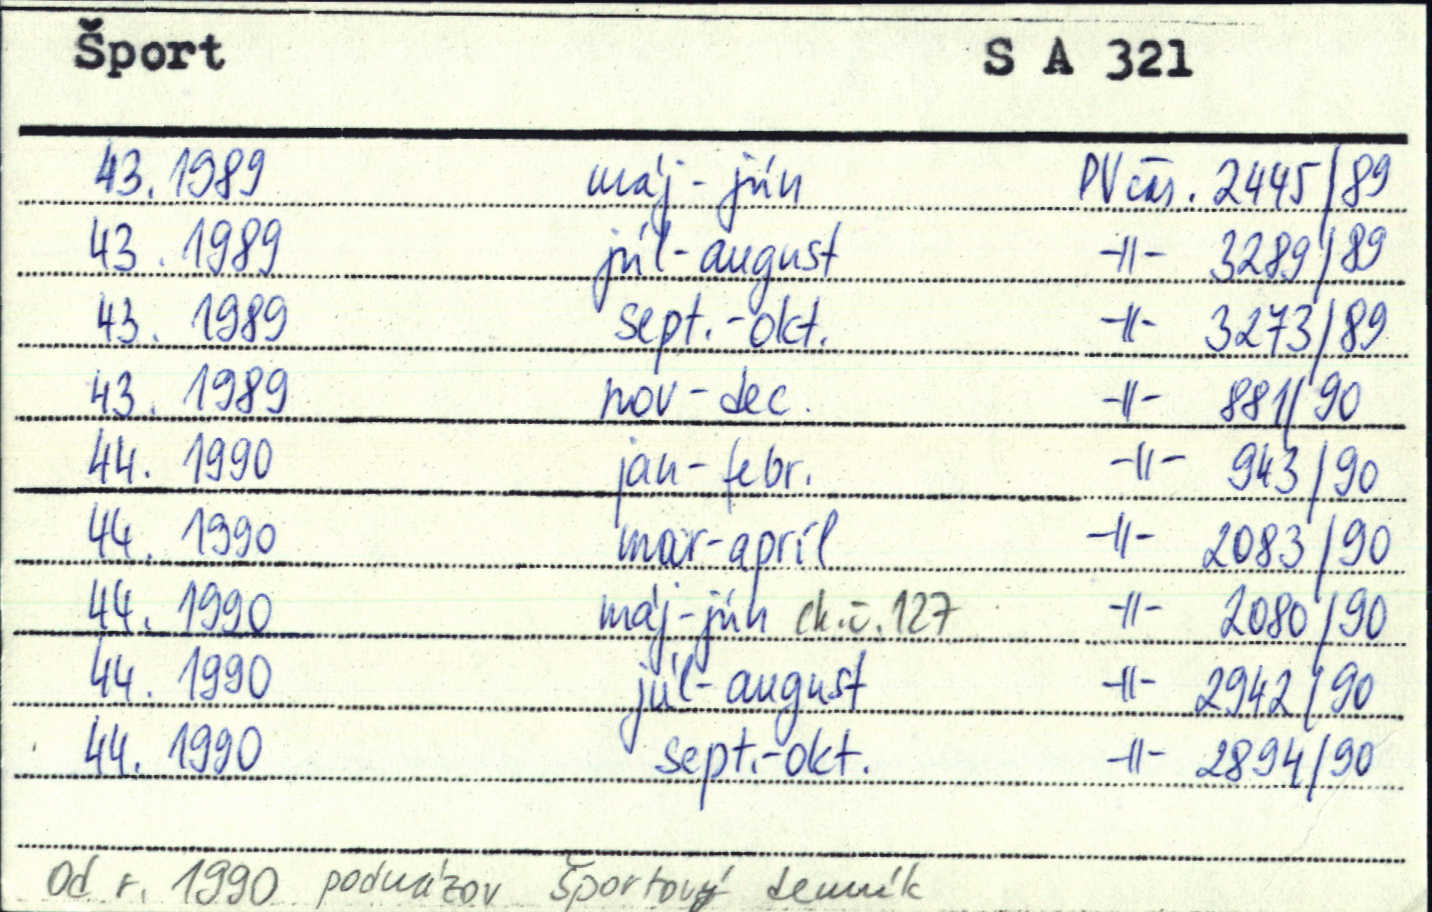 Šport S A 321
43. 1989 máj - jún PV čas. 2445/89
43. 1989 júl - august -II- 3289/89
43. 1989 sept. - okt. -II- 3273/89
43. 1989 nov - dec. -II- 881/90
44. 1990 jan - febr. -II- 943/90
44. 1990 mar - apríl -II- 2083/90
44. 1990 máj - jún ch. č. 127 -II- 2080/90
44. 1990 júl - august -II- 2942/90
44. 1990 sept. - okt. -II- 2894/90
Od r. 1990 podnázov Športový denník